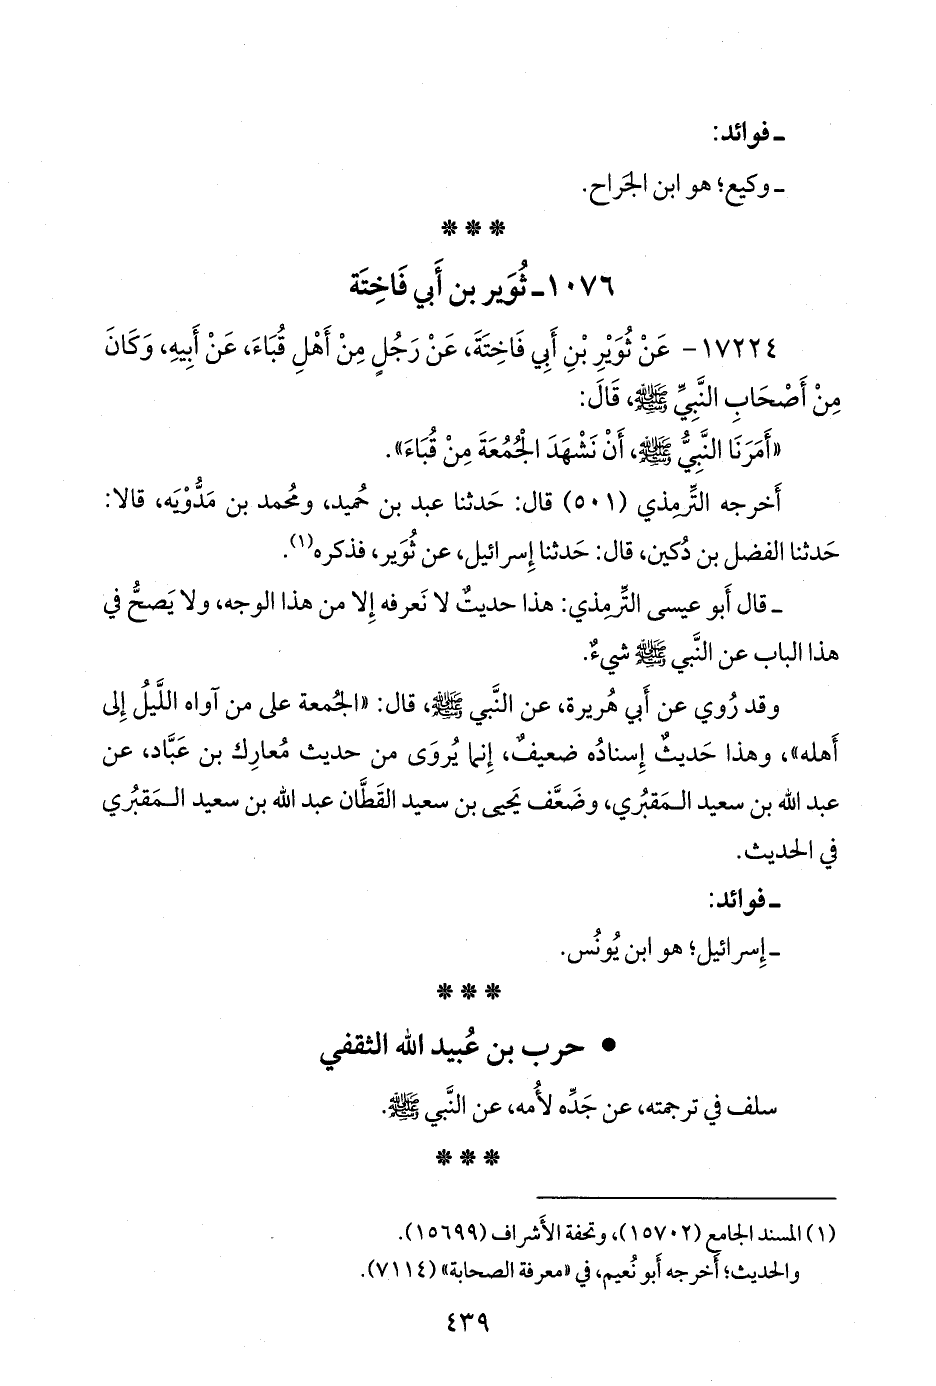 ـ فوائد:
ـ وكيع؛ هو ابن الجَراح.
* * *
١٠٧٦ـ ثُوَير بن أَبي فَاخِتَة
١٧٢٢٤- عَنْ ثُوَيْرِ بْنِ أَبِي فَاخِتَةَ، عَنْ رَجُلٍ مِنْ أَهْلِ قُبَاءَ، عَنْ أَبِيهِ، وَكَانَ
مِنْ أَصْحَابِ النَّبِيِّ ﷺ، قَالَ:
«أَمَرَنَا النَّبِيُّ ﷺ، أَنْ نَشْهَدَ الْجُمُعَةَ مِنْ قُبَاءَ».
أَخرجه التِّرمِذي (٥٠١) قال: حَدثنا عبد بن حُميد، ومُحمد بن مَدُّوْيَه، قالا:
حَدثنا الفضل بن دُكين، قال: حَدثنا إِسرائيل، عن ثُوَير، فذكره(١).
ـ قال أَبو عيسى التِّرمِذي: هذا حديثٌ لا نَعرفه إِلا من هذا الوجه، ولا يَصحُّ في
هذا الباب عن النَّبي ﷺ شيءٌ.
وقد رُوي عن أَبي هُريرة، عن النَّبي ﷺ، قال: «الجُمعة على من آواه اللَّيلُ إِلى
أَهله»، وهذا حَديثٌ إِسنادُه ضعيفٌ، إِنما يُروَى من حديث مُعارِك بن عَبَّاد، عن
عبد الله بن سعيد المَقبُري، وضَعَّف يَحيى بن سعيد القَطَّان عبد الله بن سعيد المَقبُري
في الحديث.
ـ فوائد:
ـ إِسرائيل؛ هو ابن يُونُس.
* * *
• حرب بن عُبيد الله الثقفي
سلف في ترجمته، عن جَدِّه لأُمه، عن النَّبي ﷺ.
* * *
(١) المسند الجامع (١٥٧٠٢)، وتحفة الأَشراف (١٥٦٩٩).
والحديث؛ أَخرجه أَبو نُعيم، في «معرفة الصحابة» (٧١١٤).
٤٣٩